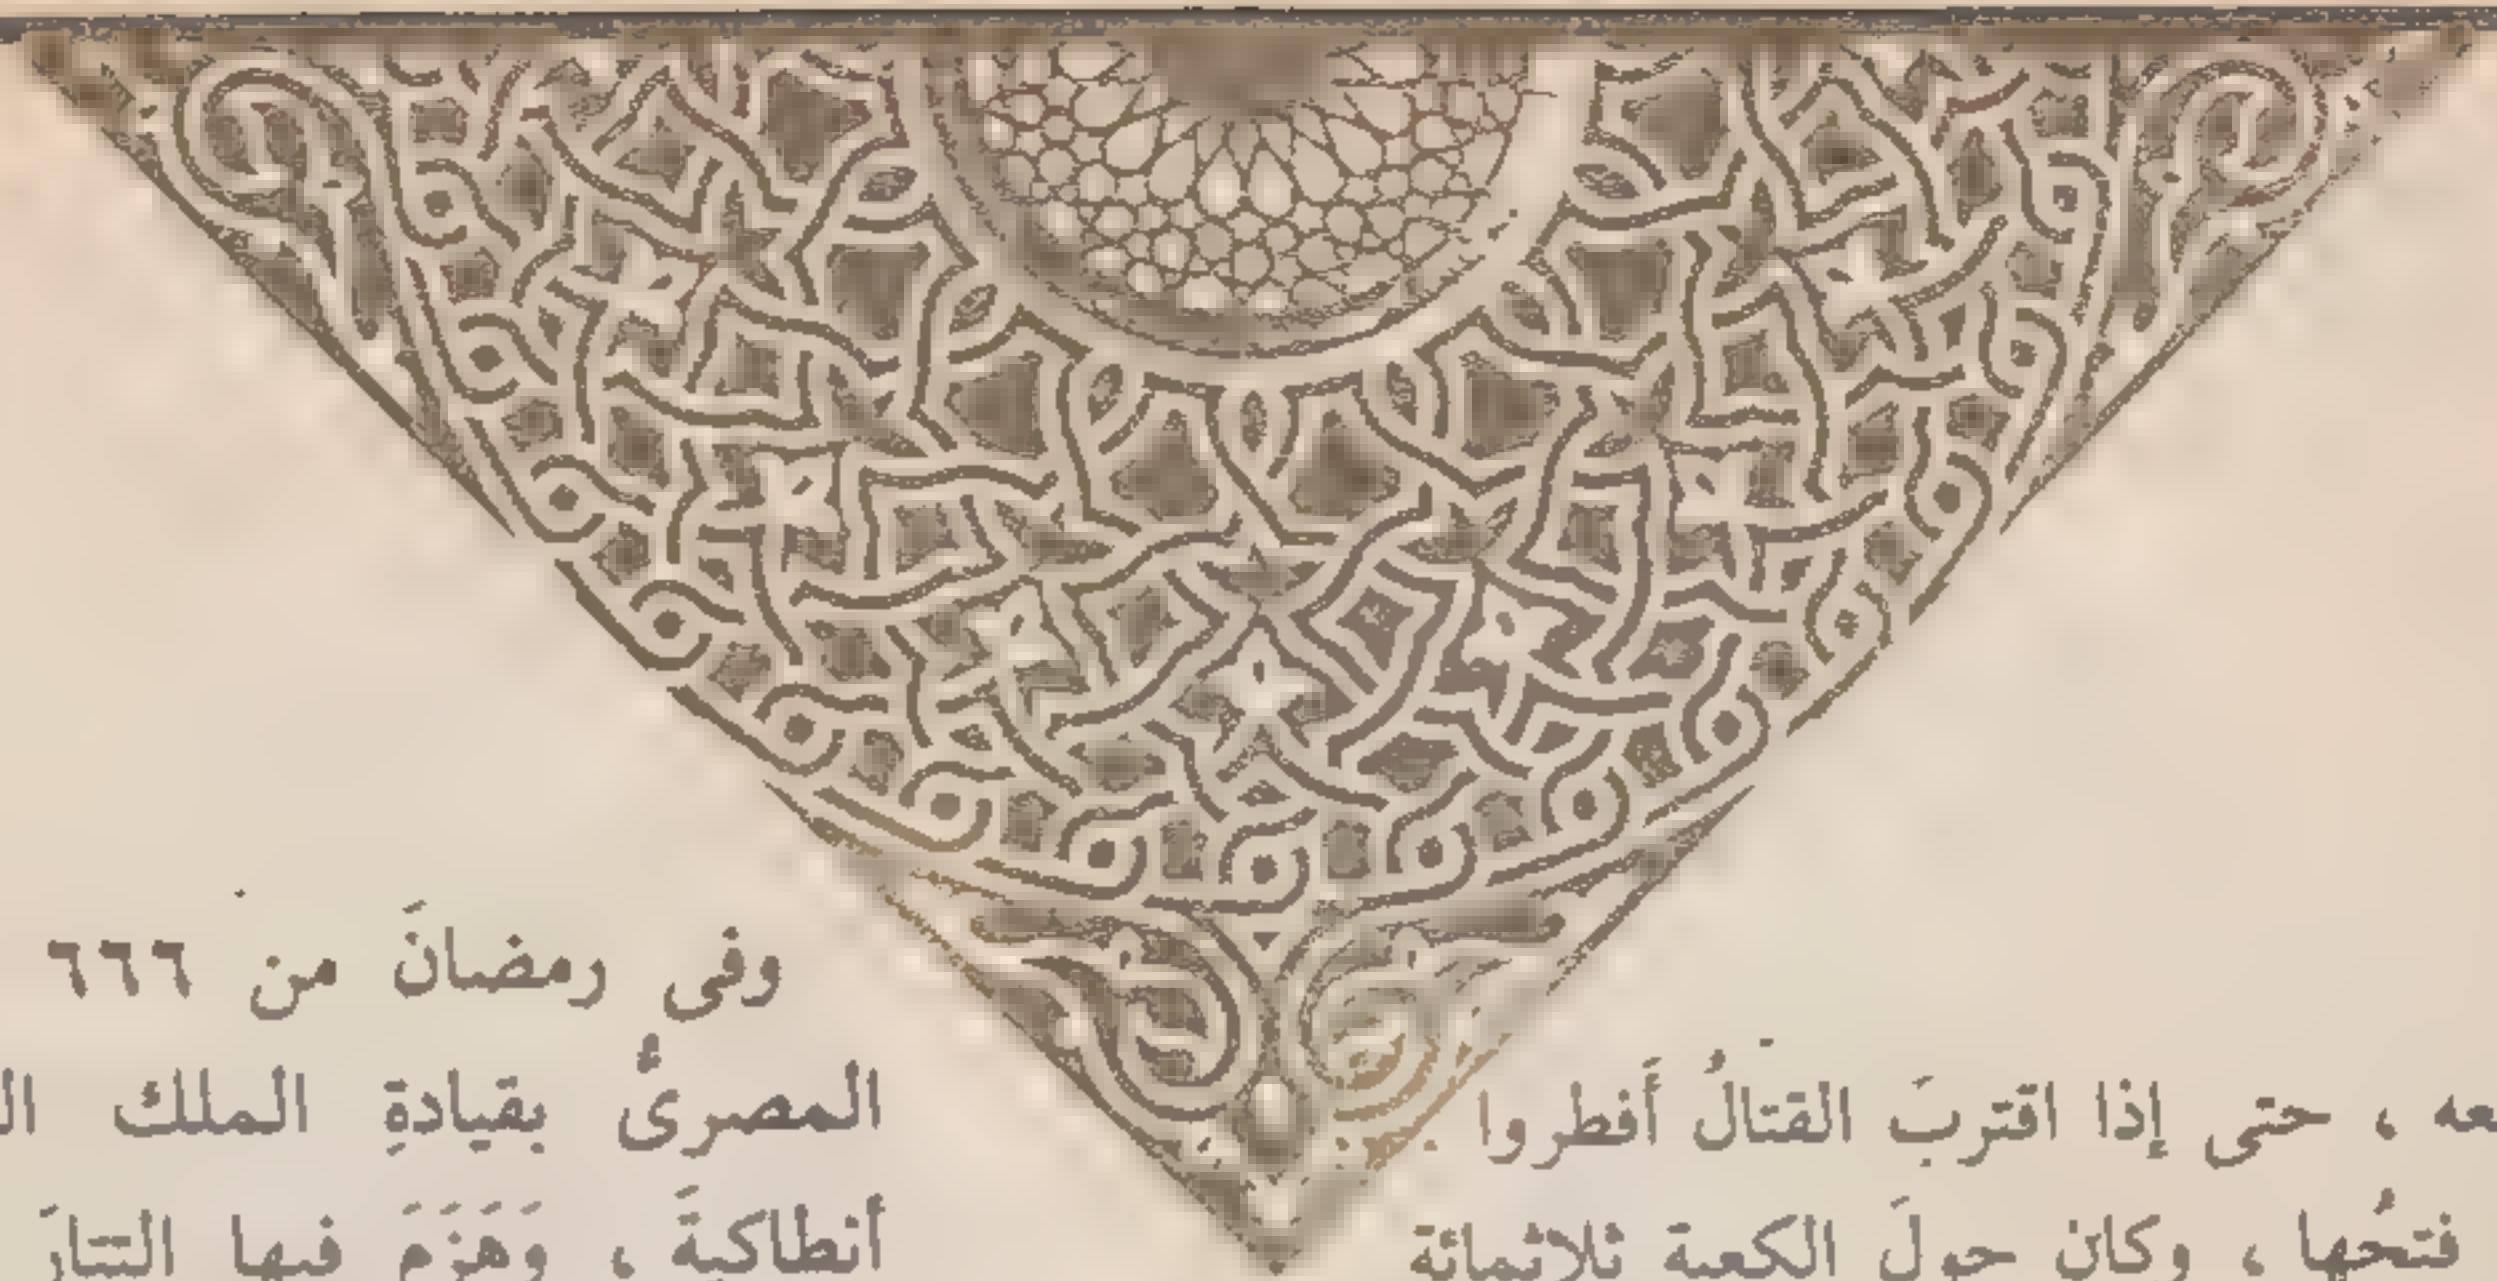 عه ، حتى إذا اقتربَ القتالُ أَفطروا
فتحُها ، وكان حولَ الكعبة ثلاثمائة
وفى رمضانَ من ٦٦٦
المصرىُّ بقيادةِ الملك
أنطاكيةَ ، وَهَزَمَ فيها التتارَ